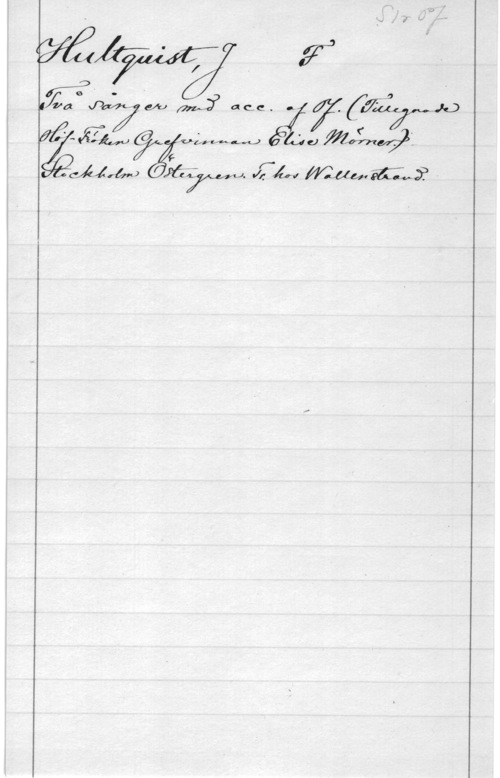 S/r Of
Hultquist, J F
Två sånger med acc. af Pf. (Tillegnade
Hof-Fröken Grefvinnan Elise Mörner).
Stockholm Östergren. Tr. hos Wallenstrand.